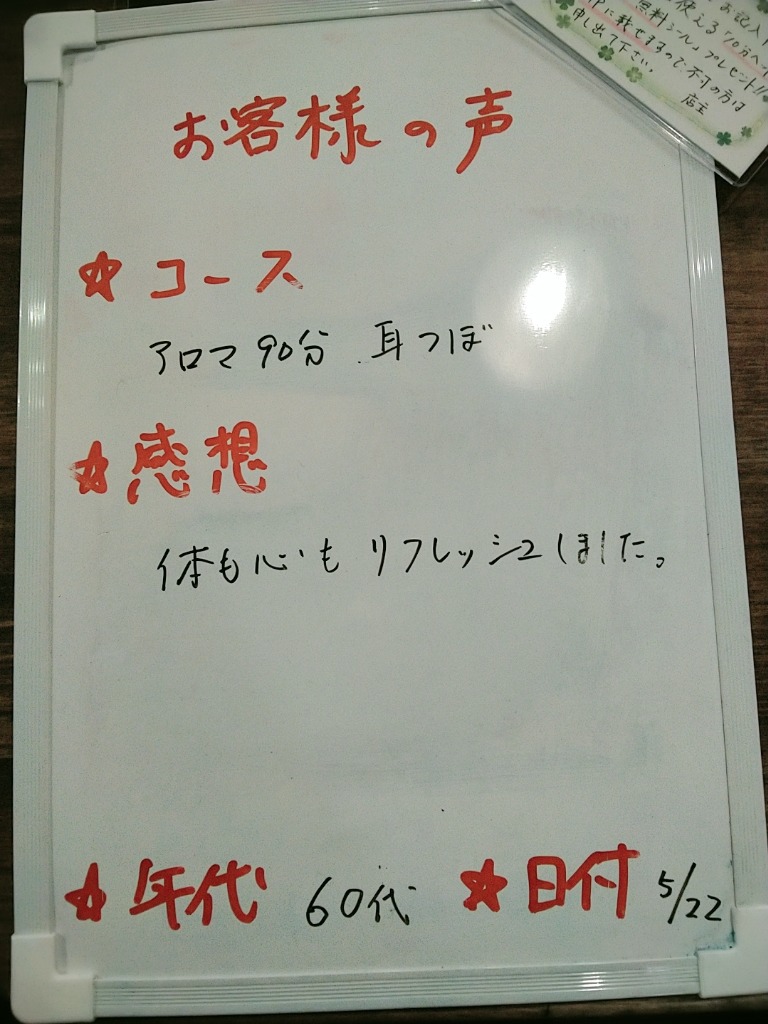 お客様の声
☆ コース
アロマ90分 耳つぼ
☆ 感想
体も心も リフレッシュしました。
☆ 年代 60代 ☆ 日付 5/22
使える「10分ヘッ
無料シール」プレゼント!!
に載せますので、不可の方は
申し出下さい。
店主